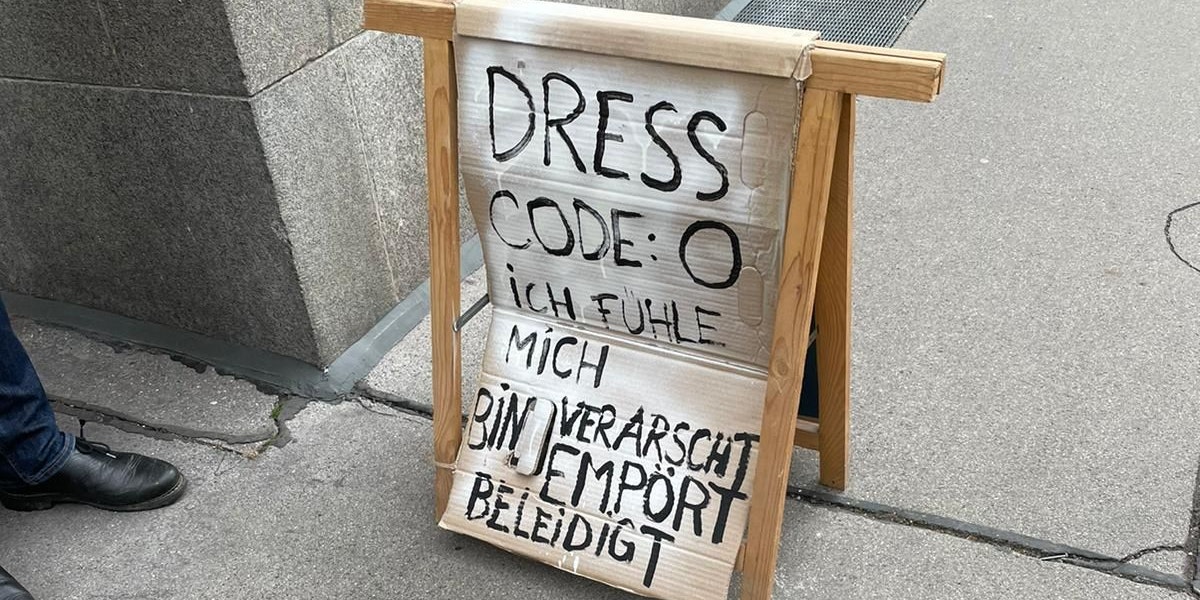 DRESS
CODE: O
iCH FÜHLE
MiCH
BiN VERARSCHT
EMPÖRT
BELEiDiGT